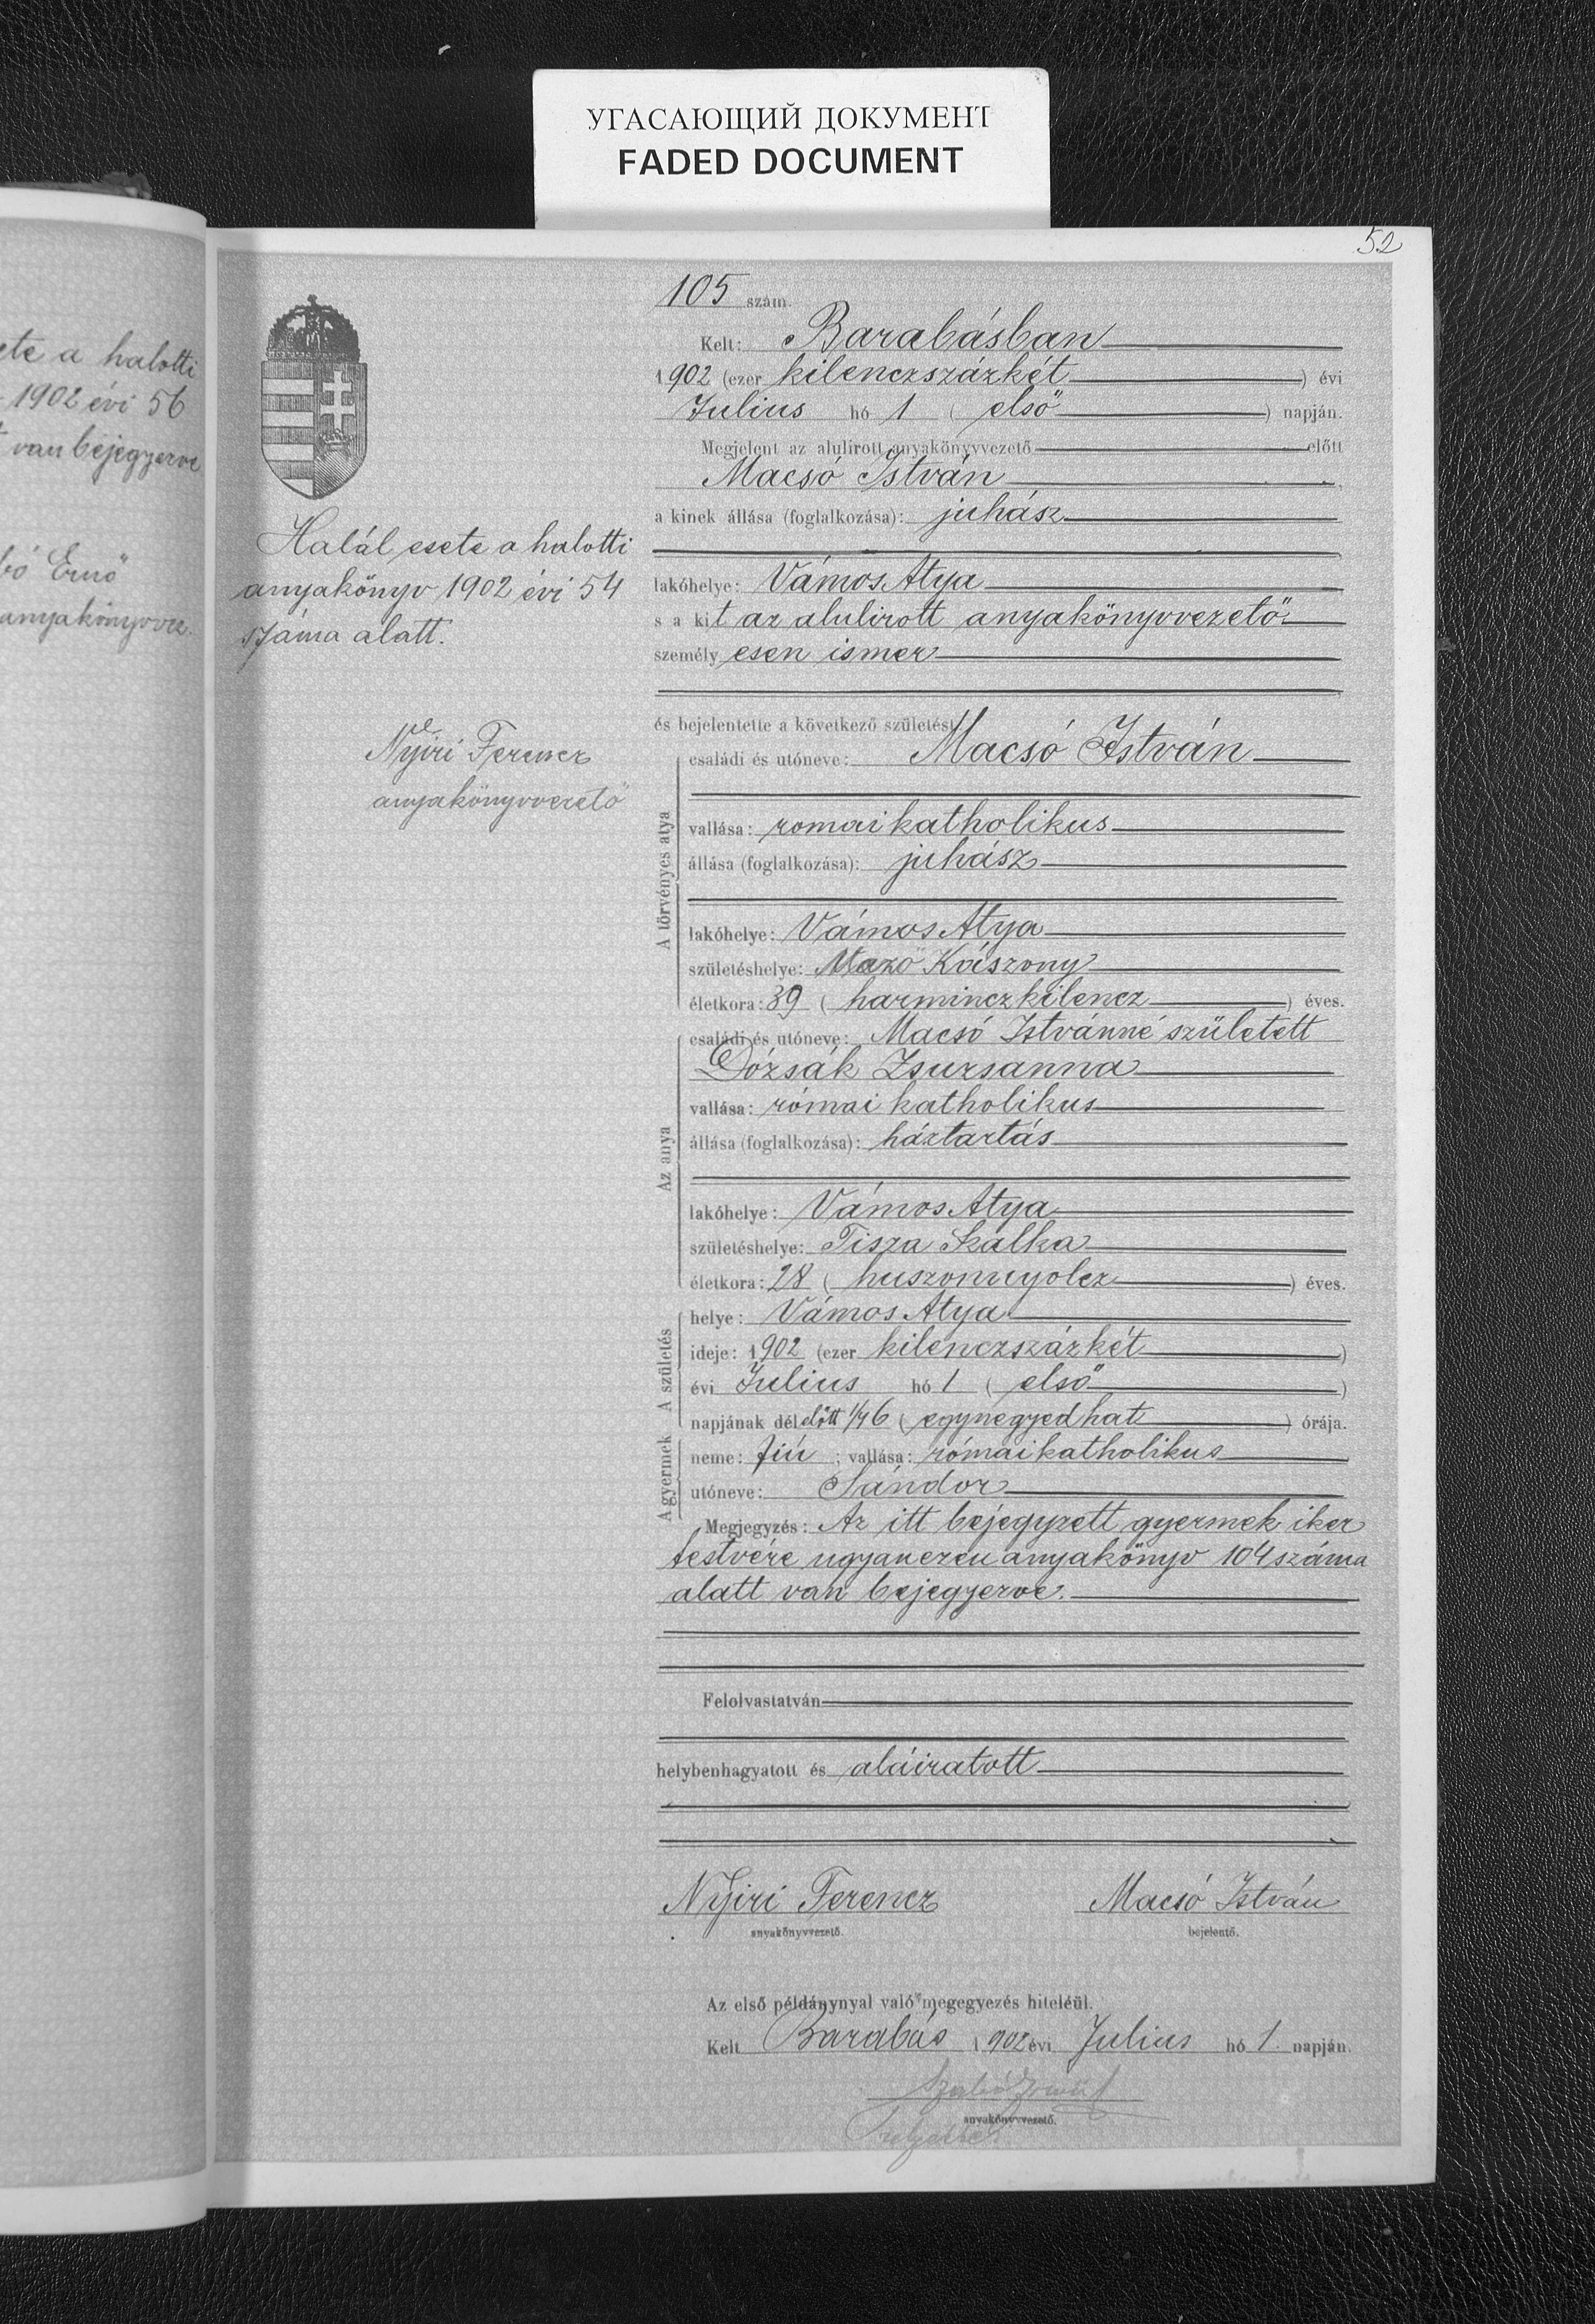 УГАСАЮЩИЙ ДОКУМЕНТ
FADED DOCUMENT
52
ete a halotti
1902 évi 56
van bejegyezve
bó Ernő
anyakönyvvez.
Halál esete a halotti
anyakönyv 1902 évi 54
száma alatt.
Nyíri Ferencz
anyakönyvvezető
105 szám.
Kelt: Barabásban
1902 (ezer kilenczszázkét) évi
Julius hó 1 (első) napján.
Megjelent az alulirott anyakönyvvezető előtt
Macsó István
a kinek állása (foglalkozása): juhász
lakóhelye: Vámos Atya
s a kit az alulirott anyakönyvvezető
személyesen ismer
és bejelentette a következő születést
A törvényes atya
családi és utóneve: Macsó István
vallása: romai katholikus
állása (foglalkozása): juhász
lakóhelye: Vámos Atya
születéshelye: Mező Kászony
életkora: 39 (harminczkilencz) éves.
Az anya
családi és utóneve: Macsó Istvánné született
Dózsák Zsuzsanna
vallása: római katholikus
állása (foglalkozása): háztartás
lakóhelye: Vámos Atya
születéshelye: Tisza Szalka
életkora: 28 (huszonnyolcz) éves.
A születés
helye: Vámos Atya
ideje: 1902 (ezer kilenczszázkét)
évi Julius hó 1 (első)
napjának délelőtt 1/4 6 (egynegyedhat) órája.
A gyermek
neme: fiú; vallása: római katholikus
utóneve: Sándor
Megjegyzés: Az itt bejegyzett gyermek iker
testvére ugyanezen anyakönyv 104 száma
alatt van bejegyezve.
Felolvastatván
helybenhagyatott és aláiratott
Nyiri Ferencz Macsó István
anyakönyvvezető. bejelentő.
Az első példánynyal való megegyezés hiteléül.
Kelt Barabás 1902 évi Julius hó 1. napján.
Szabó
anyakönyvvezető.